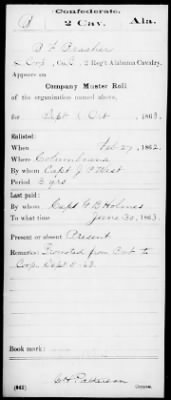 Confederate.
B 2 Cav. Ala.
B F Brasher
Corp, Co. 2 Reg't Alabama Cavalry.
Appears on
Company Muster Roll
of the organization named above,
for Sept & Oct, 1863.
Enlisted:
When Feb 27, 1862.
Where Columbiana
By whom Capt J P West
Period 3 yrs
Last paid:
By whom Capt G B Holmes
To what time June 30, 1863.
Present or absent Present
Remarks: Promoted from to
Corp. Sept 63
Book mark:
(642) Copyist.